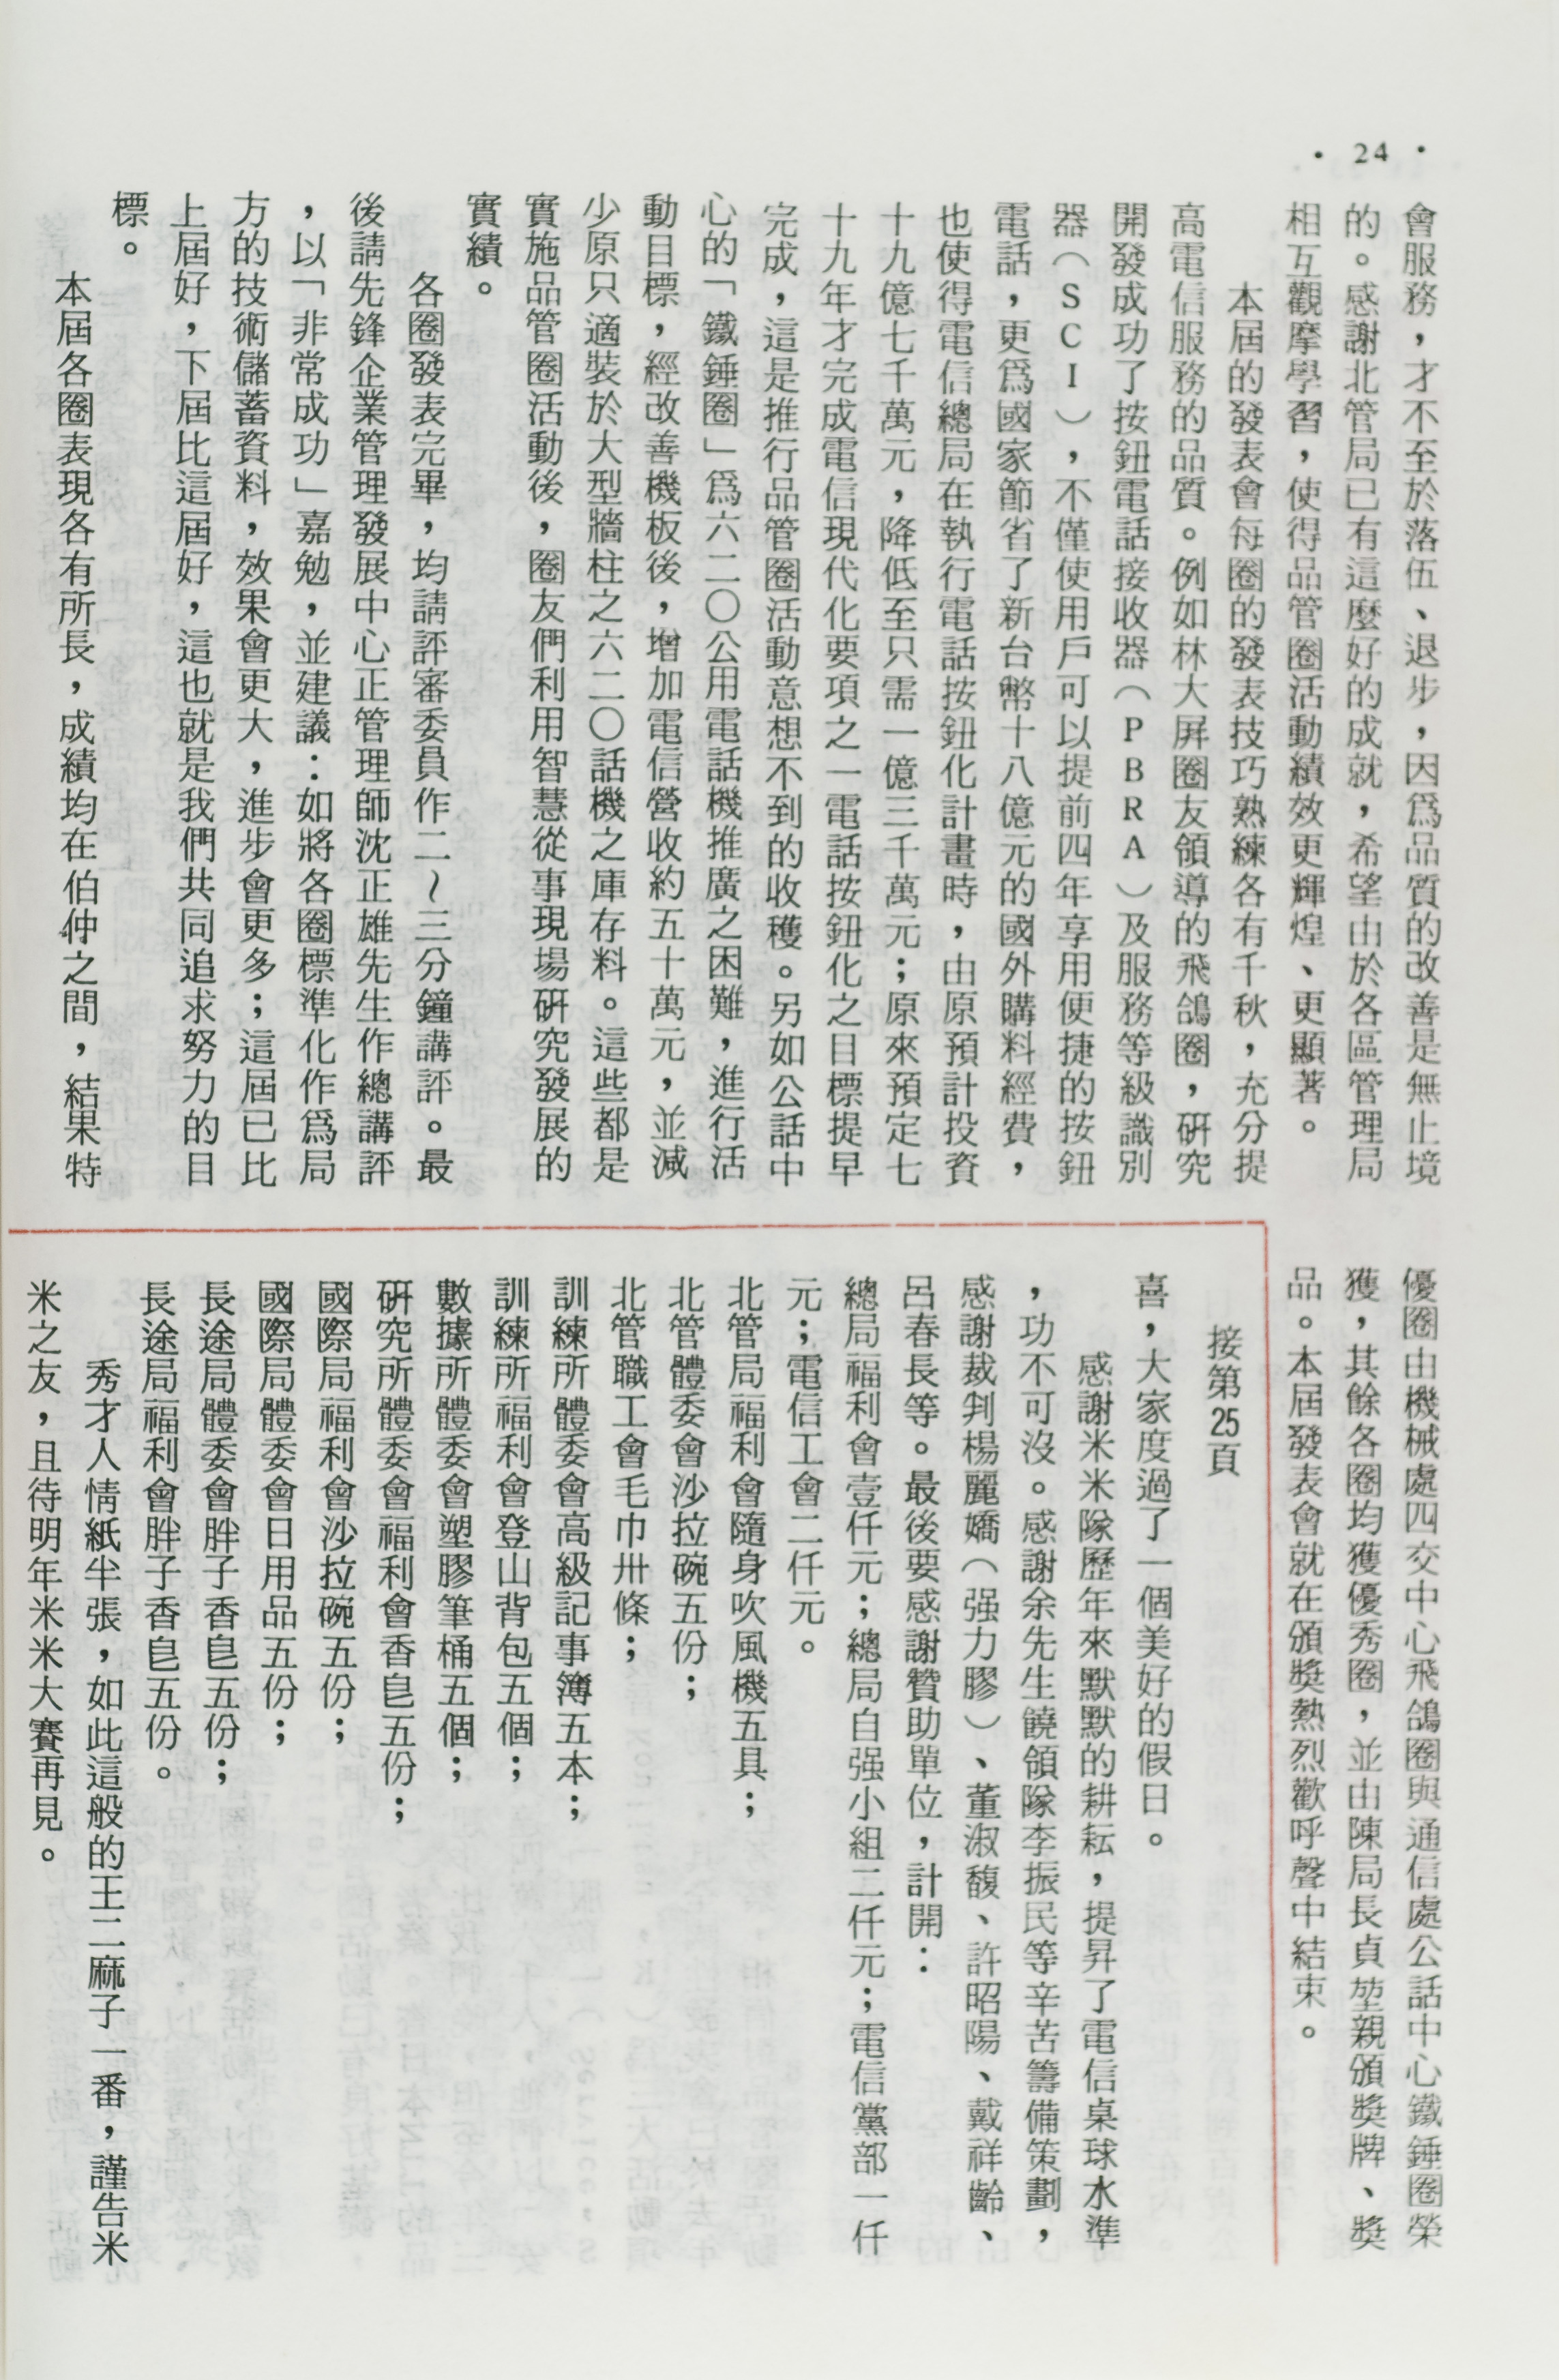 • 24 •
會服務，才不至於落伍、退步，因爲品質的改善是無止境
的。感謝北管局已有這麼好的成就，希望由於各區管理局
相互觀摩學習，使得品管圈活動績效更輝煌、更顯著。
本屆的發表會每圈的發表技巧熟練各有千秋，充分提
高電信服務的品質。例如林大屏圈友領導的飛鴿圈，研究
開發成功了按鈕電話接收器（ＰＢＲＡ）及服務等級識別
器（ＳＣＩ），不僅使用戶可以提前四年享用便捷的按鈕
電話，更爲國家節省了新台幣十八億元的國外購料經費，
也使得電信總局在執行電話按鈕化計畫時，由原預計投資
十九億七千萬元，降低至只需一億三千萬元；原來預定七
十九年才完成電信現代化要項之一電話按鈕化之目標提早
完成，這是推行品管圈活動意想不到的收穫。另如公話中
心的「鐵錘圈」爲六二〇公用電話機推廣之困難，進行活
動目標，經改善機板後，增加電信營收約五十萬元，並減
少原只適裝於大型牆柱之六二〇話機之庫存料。這些都是
實施品管圈活動後，圈友們利用智慧從事現場研究發展的
實績。
各圈發表完畢，均請評審委員作二～三分鐘講評。最
後請先鋒企業管理發展中心正管理師沈正雄先生作總講評
，以「非常成功」嘉勉，並建議：如將各圈標準化作爲局
方的技術儲蓄資料，效果會更大，進步會更多；這屆已比
上屆好，下屆比這屆好，這也就是我們共同追求努力的目
標。
本屆各圈表現各有所長，成績均在伯仲之間，結果特
優圈由機械處四交中心飛鴿圈與通信處公話中心鐵錘圈榮
獲，其餘各圈均獲優秀圈，並由陳局長貞堃親頒獎牌、獎
品。本屆發表會就在頒獎熱烈歡呼聲中結束。
接第25頁
喜，大家度過了一個美好的假日。
感謝米米隊歷年來默默的耕耘，提昇了電信桌球水準
，功不可沒。感謝余先生饒領隊李振民等辛苦籌備策劃，
感謝裁判楊麗嬌（强力膠）、董淑馥、許昭陽、戴祥齡、
呂春長等。最後要感謝贊助單位，計開：
總局福利會壹仟元；總局自强小組二仟元；電信黨部一仟
元；電信工會二仟元。
北管局福利會隨身吹風機五具；
北管體委會沙拉碗五份；
北管職工會毛巾卅條；
訓練所體委會高級記事簿五本；
訓練所福利會登山背包五個；
數據所體委會塑膠筆桶五個；
研究所體委會福利會香皂五份；
國際局福利會沙拉碗五份；
國際局體委會日用品五份；
長途局體委會胖子香皂五份；
長途局福利會胖子香皂五份。
秀才人情紙半張，如此這般的王二麻子一番，謹告米
米之友，且待明年米米大賽再見。